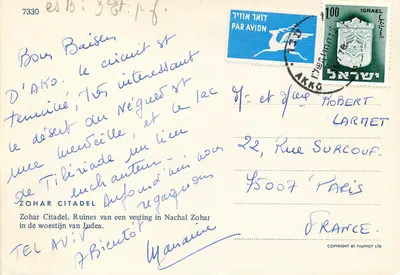 7330
Bons Baisers
D'AKO. Le circuit est
terminé, très intéressant
le désert du Néguev est
une merveille, et le lac
de Tibériade un lieu
enchanteur -
Aujourd'hui nous
regagnons
TEL AVIV
A Bientôt
ZOHAR CITADEL
Zohar Citadel. Ruines van een vesting in Nachal Zohar
in de woestijn van Judea.
דואר אוויר
PAR AVION
1.00
ISRAEL
ישראל
AKKO
Mr et Mme ROBERT
LARMET
22, RUE SURCOUF.
75007 PARIS
FRANCE.
COPYRIGHT BY PALPHOT LTD